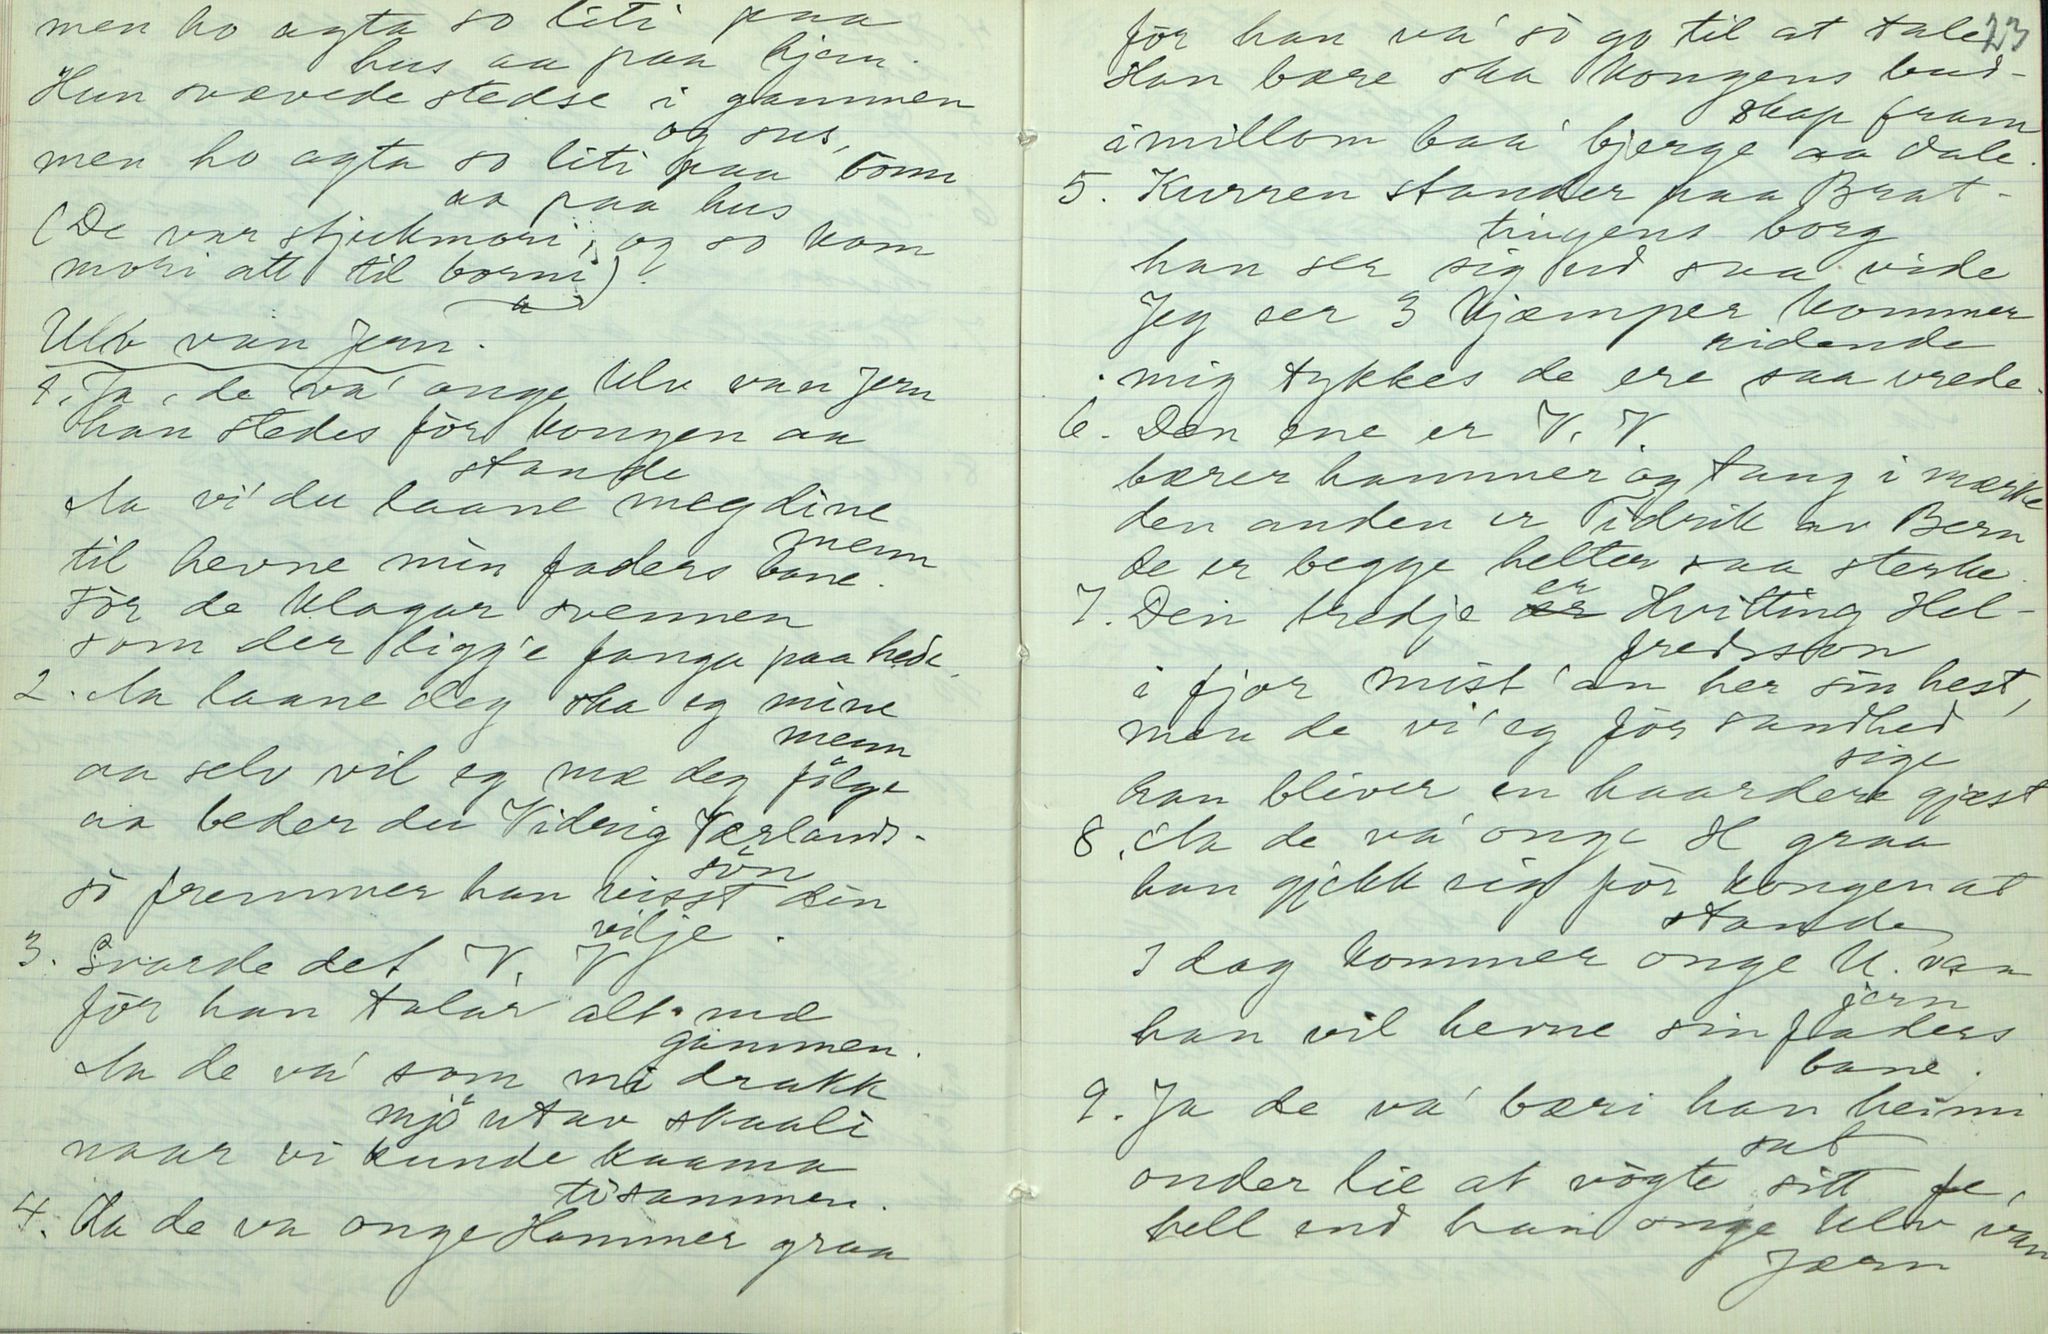 men ho agta so liti paa
hus aa paa hjem.
Hun svævede stedse i gammen
og sus,
men ho agta so liti paa bönn
aa paa hus
(De var stjukmori, og so kom
mori att til borni).
Ulv van Jern.
1. Ja, de va' onge Ulv van Jern
han stedes för kongen aa
stande
Aa vi' du laane meg dine
menn
til hevne min faders bane.
För de klagar svennen
som der ligg'e fanga paa hede.
2. Aa laane deg ska eg mine
menn
aa selv vil eg mæ deg fölge
aa beder du Vidrig Værlands-
sön
sö fremmer han visst din
vilje.
3. Svarde det V. V
för han talar alt mæ
gammen.
Aa de va' som mi drakk
mjö utav skaali
naar vi kunde kaama
tisammen.
4. Aa de va onge Hammer graa
23
för han va' sö go til at tale
Han bære ska kongens bud-
skap fram
imillom baa' bjerge aa dale.
5. Kurren stander paa Brat-
tingens borg
han ser sig ud saa vide
Jeg ser 3 kjæmper kommer
ridende
mig tykkes de ere saa vrede.
6. Den ene er V. V.
bærer hammer og tang i mærke
den anden er Tidrik av Bern
de er begge helter saa sterke.
7. Dein tredje er Hvitting Hel-
fredsson
i fjor mist' an her sin hest,
men de vi' eg för sandhed
sige
han bliver en haardere gjæst
8. Aa de va' onge H graa
han gjekk sig för kongen at
stande
I dag kommer onge U. van
jern
han vil hevne sin faders
bane.
9. Ja de va' bæri han heimi
sat
onder lie at vögte sitt fe,
hell end han onge Ulv van
Jærn